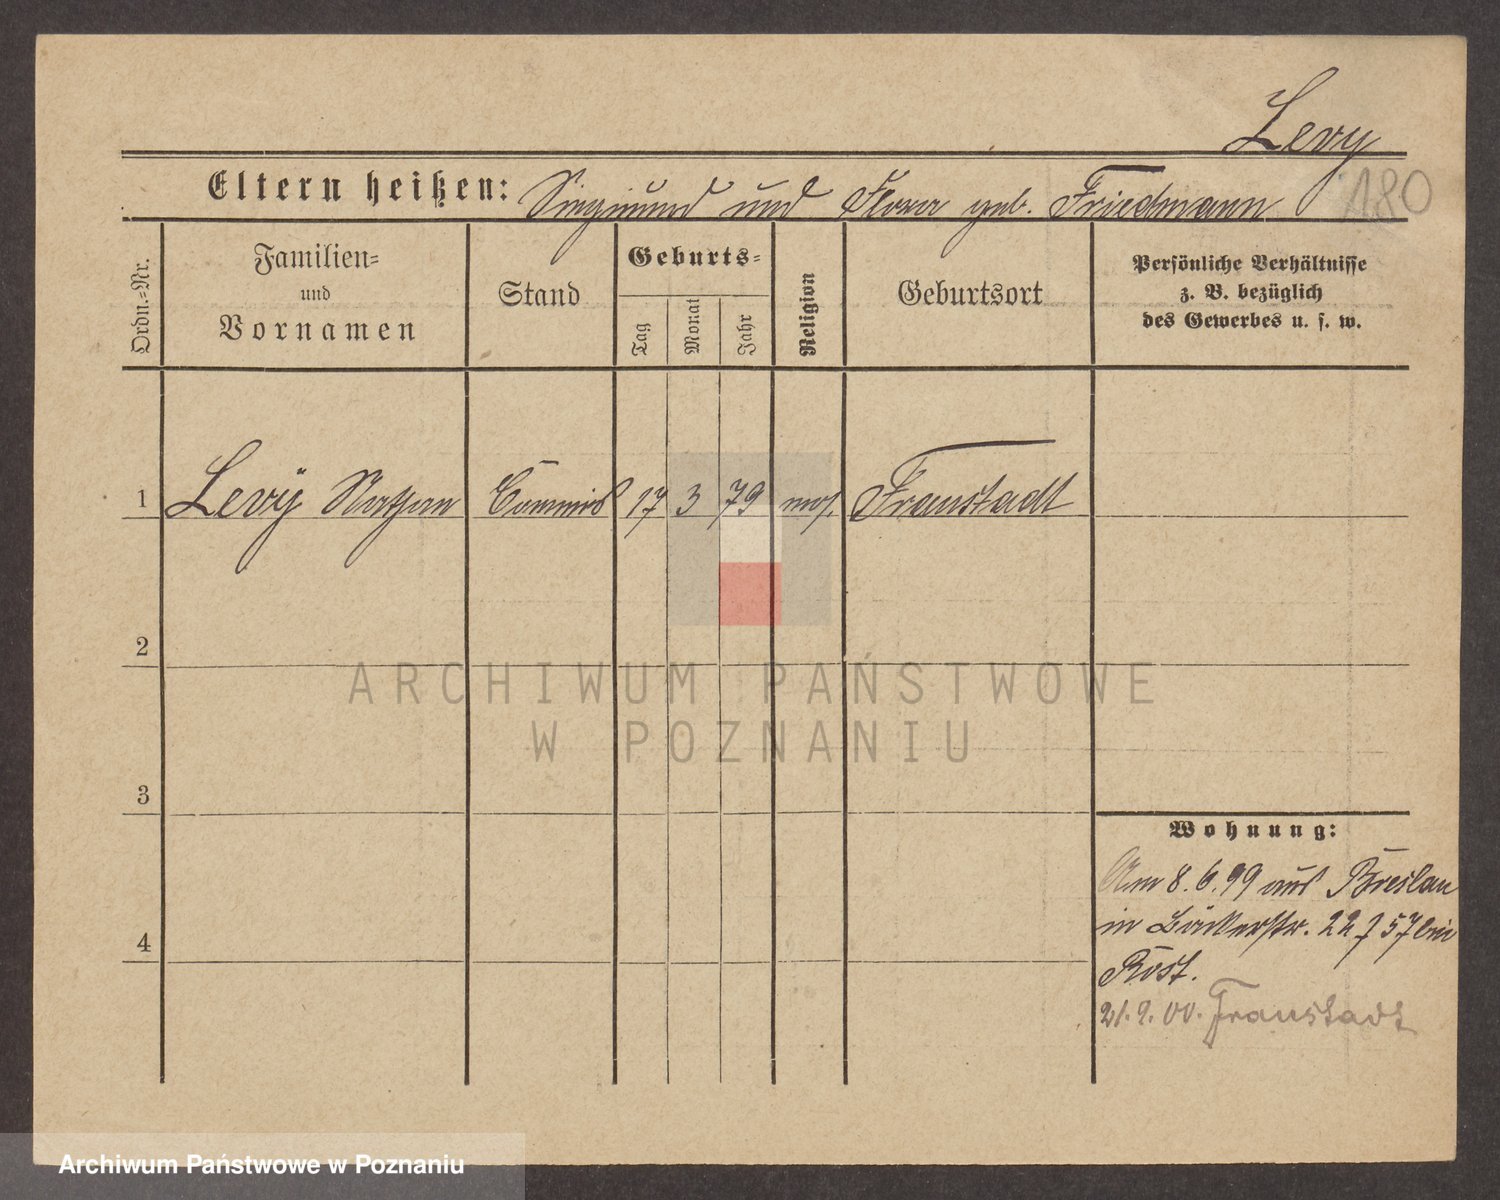 Levy
180
Eltern heißen: Siegmund und Flora geb. Friedmann
Ordn.-Nr.
Familien-
und
Vornamen
Stand
Geburts-
Tag
Monat
Jahr
Religion
Geburtsort
Persönliche Verhältnisse
z. B. bezüglich
des Gewerbes u. s. w.
1 Levÿ Nathan Commis 17 3 79 mos. Fraustadt
2
3
4
ARCHIWUM PAŃSTWOWE
W POZNANIU
Wohnung:
Am 8.6.99 aus Breslau
in Bäckerstr. 22 bei
Rost.
21.2.00. Fraustadt
Archiwum Państwowe w Poznaniu